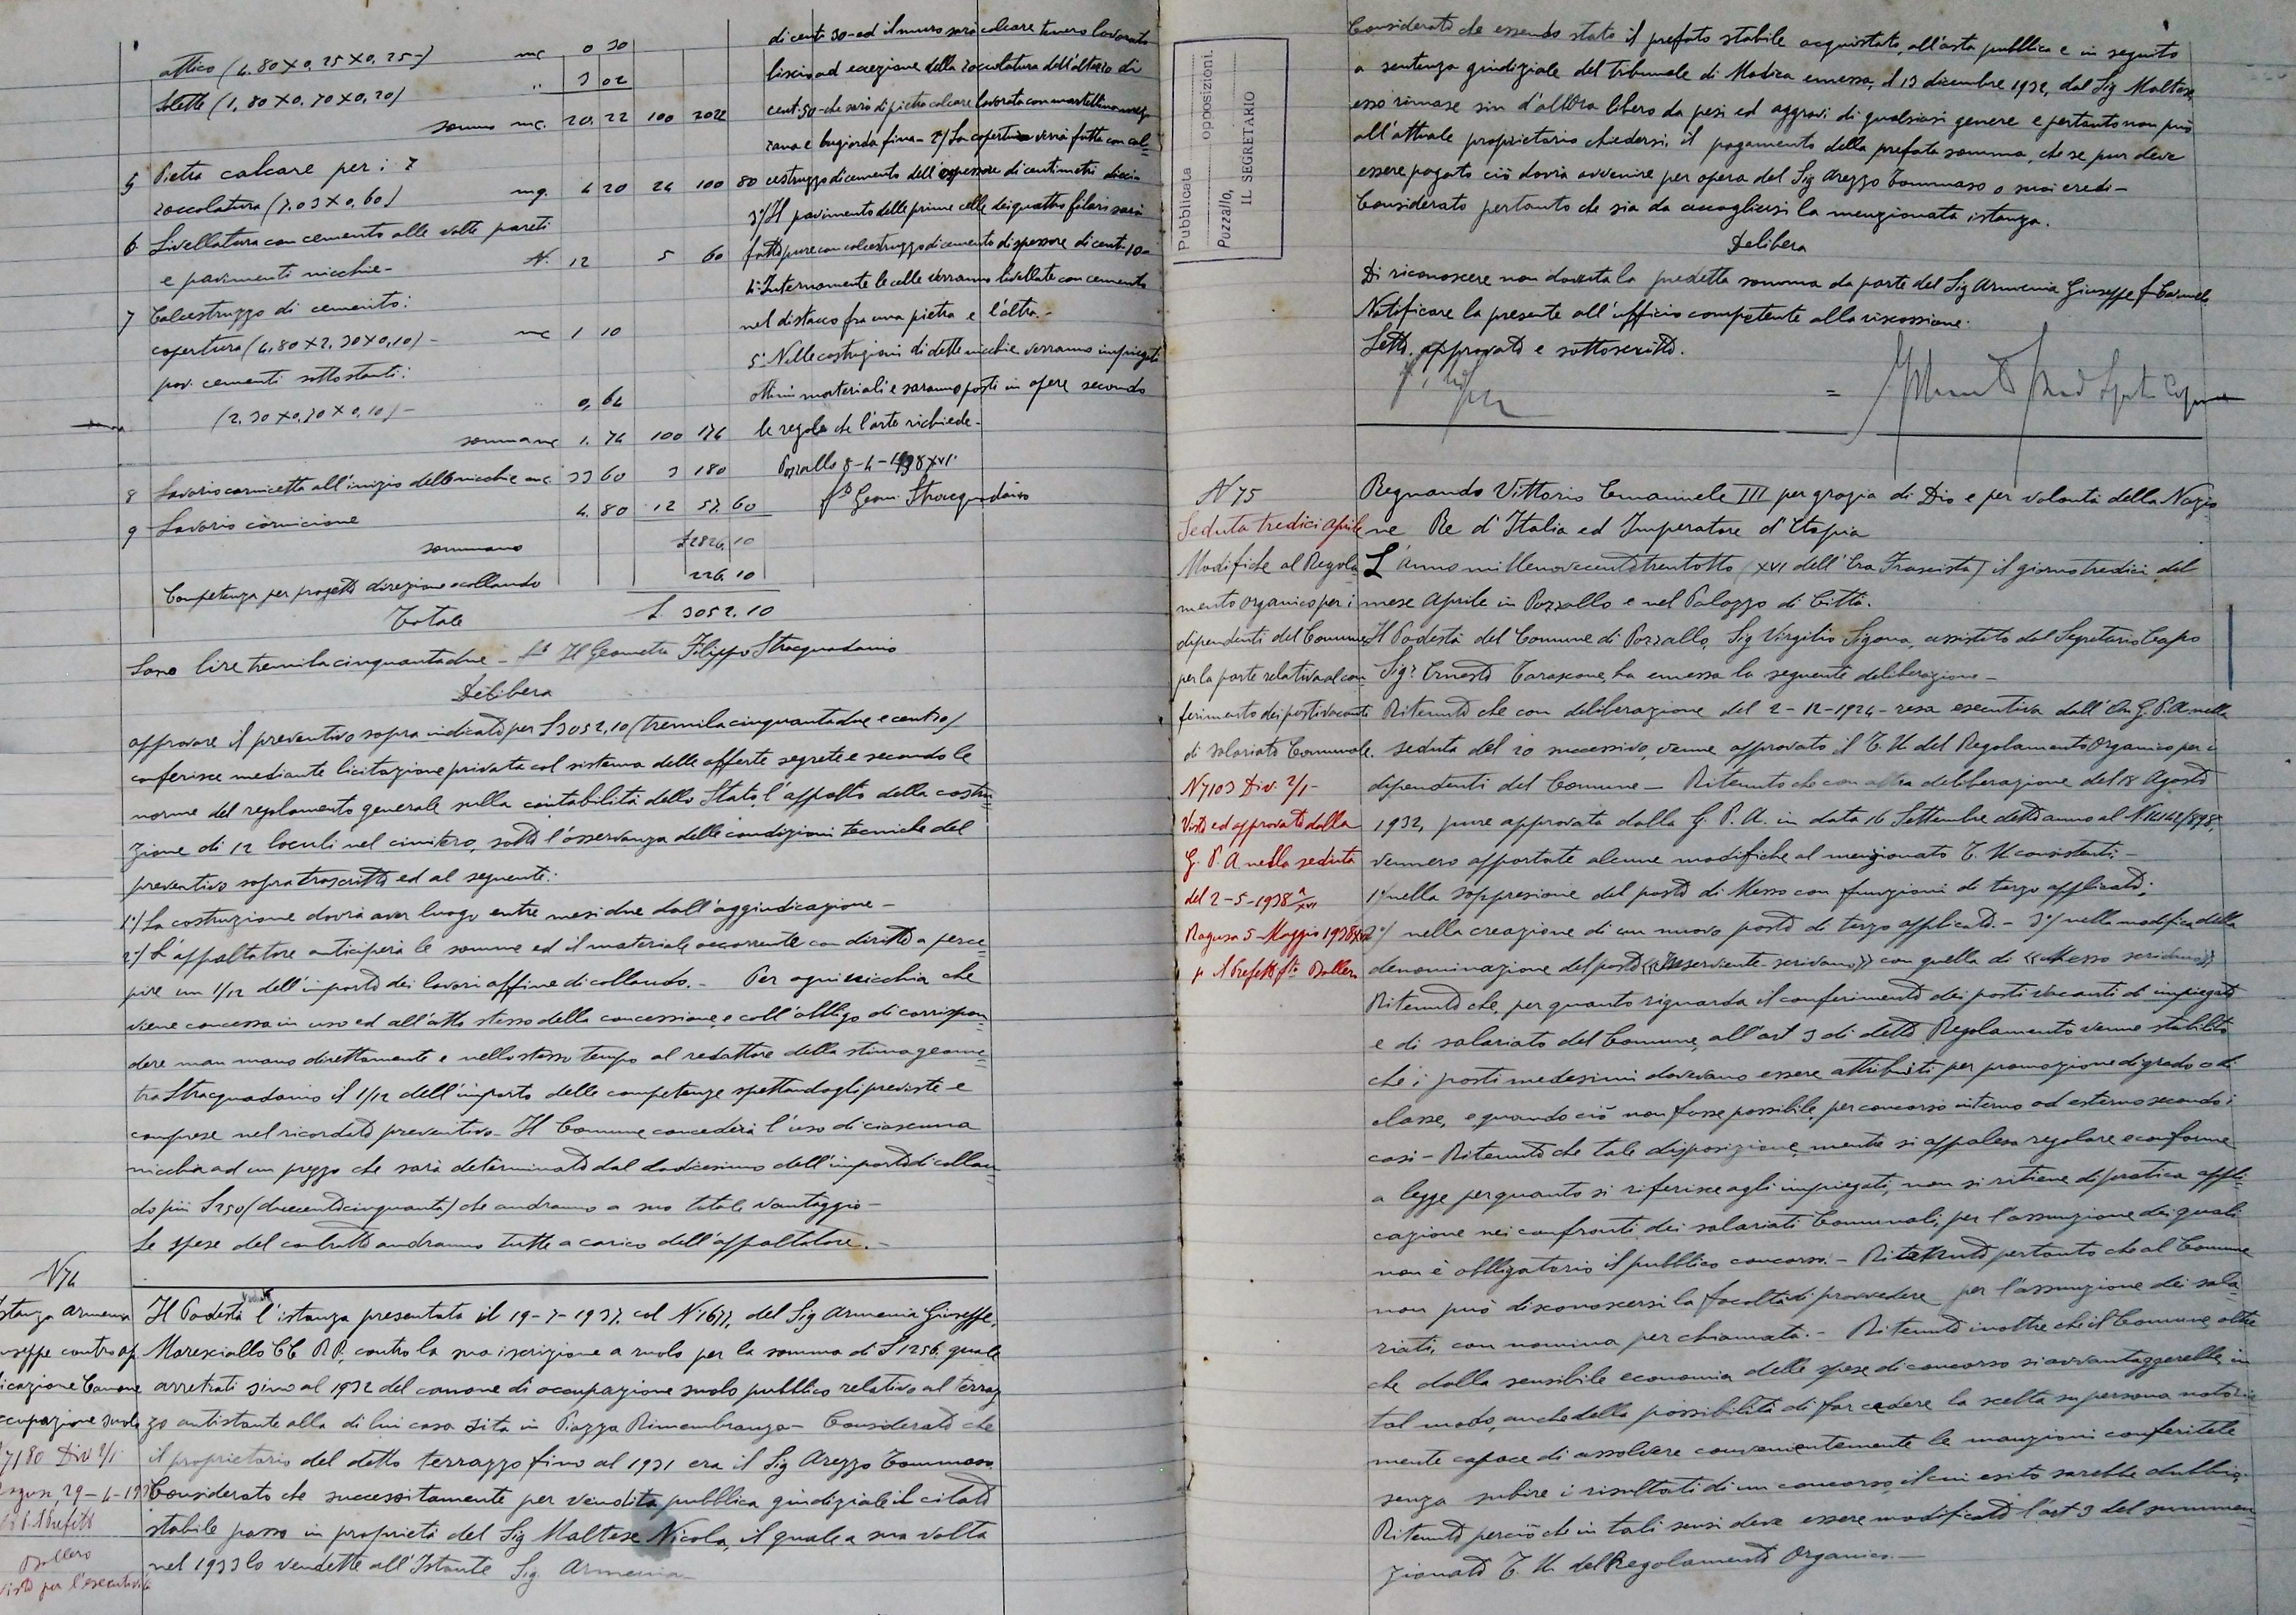 attico (4.80 X 0,25 X 0,25-) mc 0 30
Solette (1,80 X 0,70 X 0,20) " 3 02
sommano mc. 20, 22 100 2022
5 Pietra calcare per i 7
zoccolatura (7.03 X 0,60) mq. 4 20 24 100 80
6 Livellatura con cemento alle volte pareti
e pavimenti nicchie- N. 12 5 60
7 Calcestruzzo di cemento:
copertura (4,80 X 2,30 X 0,10)- mc 1 10
pav. cementi sottostanti:
(2,30 X 0,70 X 0,10)- 0, 64
sommano 1. 74 100 174
8 Lavorio cornicetta all'inizio delle nicchie mc 33 60 3 180
9 Lavorio cornicione 4. 80 12 57. 60
sommano £ 2826, 10
Competenza per progetto direzione e collaudo 226. 10
Totale £. 3052.10
di cent 30- ed il muro sarà calcare tenero lavorato
liscio ad eccezione della zoccolatura dell'altezza di
cent. 50- che sarà di pietra calcare lavorata con martellina mezza
zana e bugiarda fina- 2°/ La copertura verrà fatta con cal-
cestruzzo di cemento dell'espessore di centimetri dieci-
3°/ Il pavimento delle prime celle dei quattro filari sarà
fatto pure con calcestruzzo di cemento di spessore di cent. 10-
4° Internamente le celle verranno livellate con cemento
nel distacco fra una pietra e l'altra.-
5° Nelle costruzioni di dette nicchie verranno impiegati
ottimi materiali e saranno posti in opere secondo
le regole che l'arte richiede-
Pozzallo 8-4-1938 XVI°
f° Geom. Stracquadaino
Sono lire tremilacinquantadue- f° Il Geometra Filippo Stracquadanio
Delibera
approvare il preventivo sopra indicato per £ 3052,10 (tremilacinquantadue e cent 10)
conferisce mediante licitazione privata col sistema delle offerte segrete e secondo le
norme del regolamento generale sulla contabilità dello Stato, l'appalto della costru-
zione di 12 loculi nel cimitero, sotto l'osservanza delle condizioni tecniche del
preventivo sopra trascritto ed al seguente:
1°/ La costruzione dovrà aver luogo entro mesi due dall'aggiudicazione-
2°/ L'appaltatore anticiperà le somme ed il materiale occorrente con diritto a perce-
pire un 1/12 dell'importo dei lavori affine di collaudo.- Per ogni nicchia che
viene concessa in uso ed all'atto stesso della concessione, e coll'obbligo di corrispon-
dere man mano direttamente e nello stesso tempo al redattore della stima geome-
tra Stracquadanio il 1/12 dell'importo delle competenze spettandogli previste e
comprese nel ricordato preventivo- Il Comune concederà l'uso di ciascuna
nicchia ad un prezzo che sarà determinato dal dodicesimo dell'importo di collau-
do più £ 250 (duecentocinquanta) che andranno a suo totale vantaggio-
Le spese del contratto andranno tutte a carico dell'appaltatore.-
N 74
stanza Armenia
useppe contro ap
icazione Canone
ccupazione suolo
7180 Div 2/1
agusa, 29-4-193
Prefetto
Ballero
Visto per l'esecutività
Veduta
Il Podestà l'istanza presentata il 19-7-1937. col N° 1677, del Sig Armenia Giuseppe,
Maresciallo CC RR, contro la sua iscrizione a ruolo per la somma di £ 1256. quale
arretrati sino al 1932 del canone di occupazione suolo pubblico relativo al terraz
zo antistante alla di lui casa sita in Piazza Rimembranza- Considerato che
il proprietario del detto terrazzo fino al 1931 era il Sig Arezzo Tommaso
Considerato che successitamente per vendita pubblica giudiziale il citato
stabile passo in proprietà del Sig Maltese Nicola, il quale a sua volta
nel 1933 lo vendette all'Istante Sig Armenia-
Pubblicata opposizioni.
Pozzallo,
IL SEGRETARIO
Considerato che essendo stato il prefato stabile acquistato, all'asta pubblica e in seguito
a sentenza giudiziale del Tribunale di Modica emessa, il 13 dicembre 1932, dal Sig Maltese,
esso rimase sin d'allora libero da pesi ed aggravi di qualsiasi genere e pertanto non può
all'attuale proprietario chiedersi, il pagamento della prefata somma, che se pur deve
essere pagato ciò dovrà avvenire per opera del Sig Arezzo Tommaso o suoi eredi-
Considerato pertanto che sia da accogliersi la menzionata istanza.
Delibera
Di riconoscere non dovuta la predetta somma da parte del Sig Armenia Giuseppe f Carmelo
Notificare la presente all'ufficio competente alla riscossione.
Letto, approvato e sottoscritto.
N 75
Seduta tredici aprile
Modifiche al Regola
mento organico per i
dipendenti del Comune
per la parte relativa al con
ferimento dei posti vacanti
di salariato Comunale.
N 7103 Div. 2/1-
Visto ed approvato dalla
G. P. A nella seduta
del 2-5-1938 XVI
Ragusa 5- Maggio 1938 XVI
p il Prefetto fto Ballero
Regnando Vittorio Emanuele III per grazia di Dio e per volontà della Nazio
ne Re d'Italia ed Imperatore d'Etiopia
L'Anno millenovecentotrentotto (XVI dell'Era Frascista) il giorno tredici del
mese Aprile in Pozzallo e nel Palazzo di Città.
Il Podestà del Comune di Pozzallo, Sig Virgilio Sigona, assistito dal Segretario Capo
Sigr Ernesto Tarascone, ha emessa la seguente deliberazione-
Ritenuto che con deliberazione del 2-12-1924- resa esecutiva dall'On G.P.A nella
seduta del 20 successivo, venne approvato il T. U del Regolamento Organico per i
dipendenti del Comune- Ritenuto che con altra deliberazione del 18 Agosto
1932, pure approvata dalla G. P. A. in data 16 Settembre detto anno al N 14142/898,
vennero apportate alcune modifiche al menzionato T. U consistenti-
1°/ nella soppresione del posto di Messo con funzioni di terzo applicato;
2°/ nella creazione di un nuovo posto di terzo applicato.- 3°/ nella modifica della
denominazione del posto «Inserviente- scrivano» con quella di «Messo scrivano»
Ritenuto che, per quanto riguarda il conferimento dei posti vacanti di impiegato
e di salariato del Comune, all'art 3 di detto Regolamento venne stabilito
che i posti medesimi dovevano essere attribuiti per promozione di grado o di
classe, e quando ciò non fosse possibile, per concorso interno od esterno secondo i
casi- Ritenuto che tale disposizione, mentre si appalesa regolare e conforme
a legge per quanto si riferisce agli impiegati, non si ritiene di pratica appli-
cazione nei confronti dei salariati Comunali, per l'assunzione dei quali
non è obbligatorio il pubblico concorso.- Ritenuto pertanto che al Comune
non può disconoscersi la facoltà di provvedere per l'assunzione dei sala-
riati, con nomina per chiamata.- Ritenuto inoltre che il Comune, oltre
che dalla sensibile economia delle spese di concorso si avvantaggerebbe, in
tal modo, anche della possibilità di far cadere la scelta su persona notoria
mente capace di assolvere convenientemente le manzioni conferitele
senza subire i risultati di un concorso, il cui esito sarebbe dubbio.
Ritenuto perciò che in tali sensi deve essere modificato l'art 3 del summen-
zionato T. U. del Regolamento Organico.-